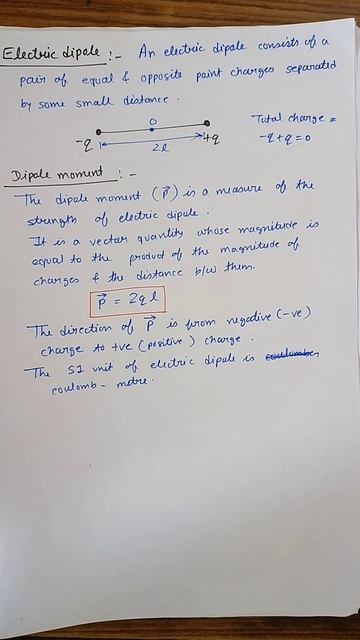 Electric dipole :- An electric dipole consists of a
pair of equal & opposite point charges separated
by some small distance.
O
-q
+q
2l
Total charge =
-q+q=0
Dipole moment :-
The dipole moment (p⃗) is a measure of the
strength of electric dipole.
It is a vector quantity whose magnitude is
equal to the product of the magnitude of
charges & the distance b/w them.
p⃗ = 2q l
The direction of p⃗ is from negative (-ve)
charge to +ve (positive) charge.
The SI unit of electric dipole is
coulomb - metre.